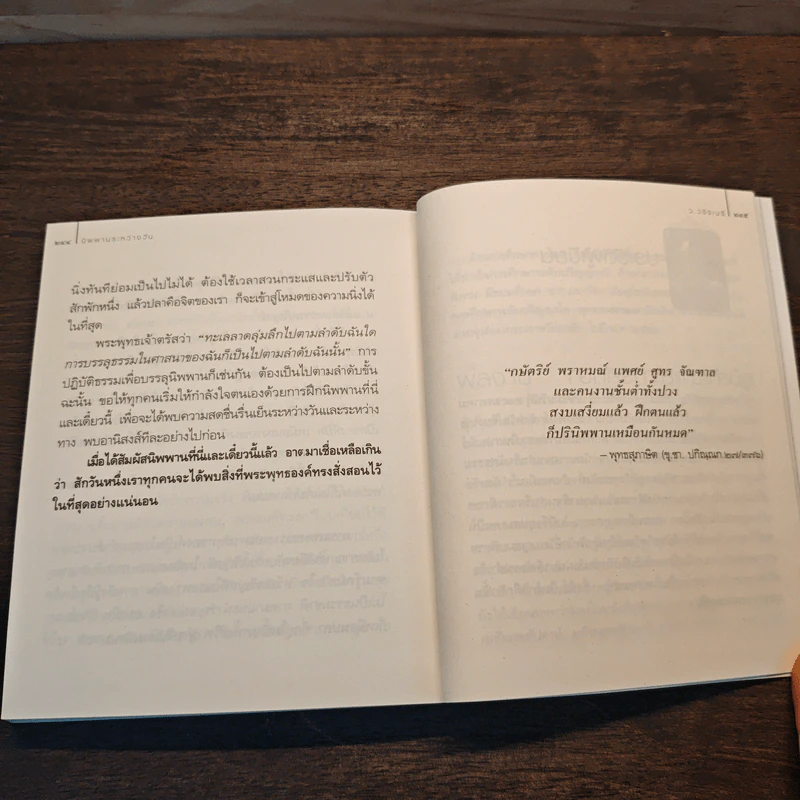 ๒๔๔ นิพพานระหว่างวัน
นิ่งทันทีย่อมเป็นไปไม่ได้ ต้องใช้เวลาสวนกระแสและปรับตัว
สักพักหนึ่ง แล้วปลาคือจิตของเรา ก็จะเข้าสู่โหมดของความนิ่งได้
ในที่สุด
พระพุทธเจ้าตรัสว่า “ทะเลลาดลุ่มลึกไปตามลำดับฉันใด
การบรรลุธรรมในศาสนาของฉันก็เป็นไปตามลำดับฉันนั้น” การ
ปฏิบัติธรรมเพื่อบรรลุนิพพานก็เช่นกัน ต้องเป็นไปตามลำดับขั้น
ฉะนั้น ขอให้ทุกคนเริ่มให้กำลังใจตนเองด้วยการฝึกนิพพานที่นี่
และเดี๋ยวนี้ เพื่อจะได้พบความสดชื่นรื่นเย็นระหว่างวันและระหว่าง
ทาง พบอานิสงส์ทีละอย่างไปก่อน
เมื่อได้สัมผัสนิพพานที่นี่และเดี๋ยวนี้แล้ว อาตมาเชื่อเหลือเกิน
ว่า สักวันหนึ่งเราทุกคนจะได้พบสิ่งที่พระพุทธองค์ทรงสั่งสอนไว้
ในที่สุดอย่างแน่นอน
ว. วชิรเมธี ๒๔๕
“กษัตริย์ พราหมณ์ แพศย์ ศูทร จัณฑาล
และคนงานชั้นต่ำทั้งปวง
สงบเสงี่ยมแล้ว ฝึกตนแล้ว
ก็ปรินิพพานเหมือนกันหมด”
– พุทธสุภาษิต (ขุ.ชา. ปกิณฺณก.๒๗/๓๗๖)